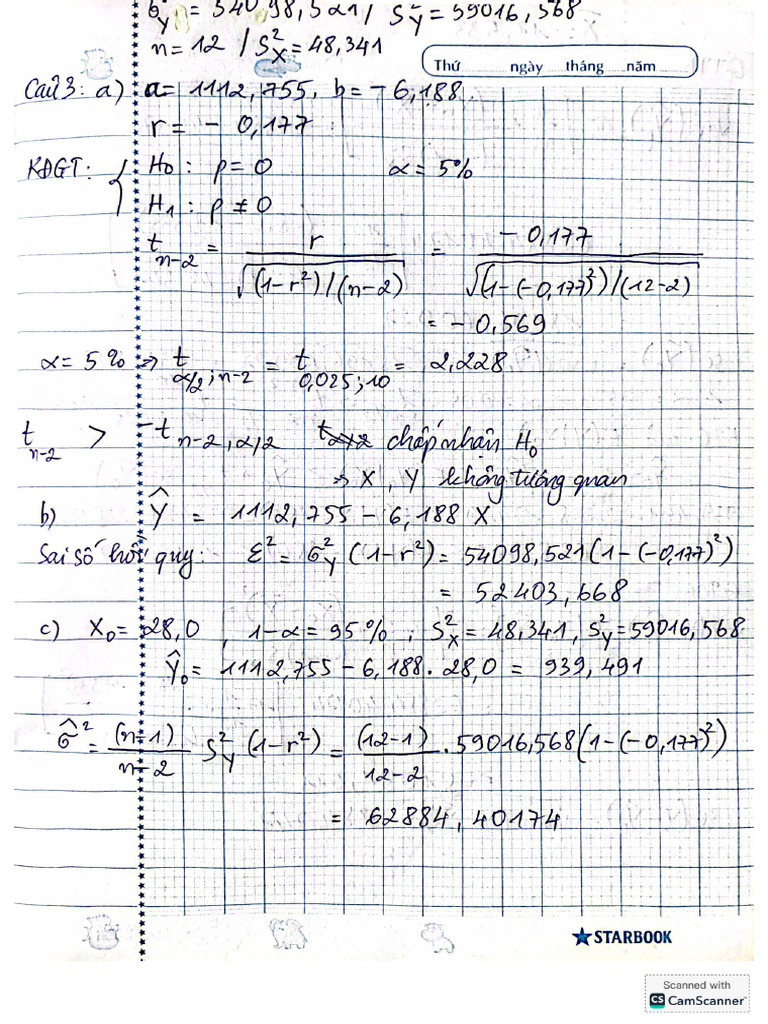 σ²_Y = 54098,521 / S²_Y = 59016,568
n = 12 / S²_X = 48,341
Thứ ngày tháng năm
Câu 3: a) a = 1112,755, b = - 6,188
r = - 0,177
KĐGT: { H₀: ρ = 0 α = 5%
H₁: ρ ≠ 0
t_{n-2} = r / √((1-r²)/(n-2)) = - 0,177 / √((1-(-0,177)²)/(12-2))
= - 0,569
α = 5% => t_{α/2; n-2} = t_{0,025; 10} = 2,228
t_{n-2} > -t_{n-2, α/2} chấp nhận H₀
=> X, Y không tương quan
b) Ŷ = 1112,755 - 6,188 X
Sai số hồi quy: ε² = σ²_Y (1-r²) = 54098,521(1-(-0,177)²)
= 52403,668
c) X₀ = 28,0, 1-α = 95%; S²_X = 48,341, S²_Y = 59016,568
Ŷ₀ = 1112,755 - 6,188 . 28,0 = 939,491
σ̂² = (n-1)/(n-2) S²_Y (1-r²) = (12-1)/(12-2) . 59016,568(1-(-0,177)²)
= 62884,40174
STARBOOK
Scanned with
CS CamScanner